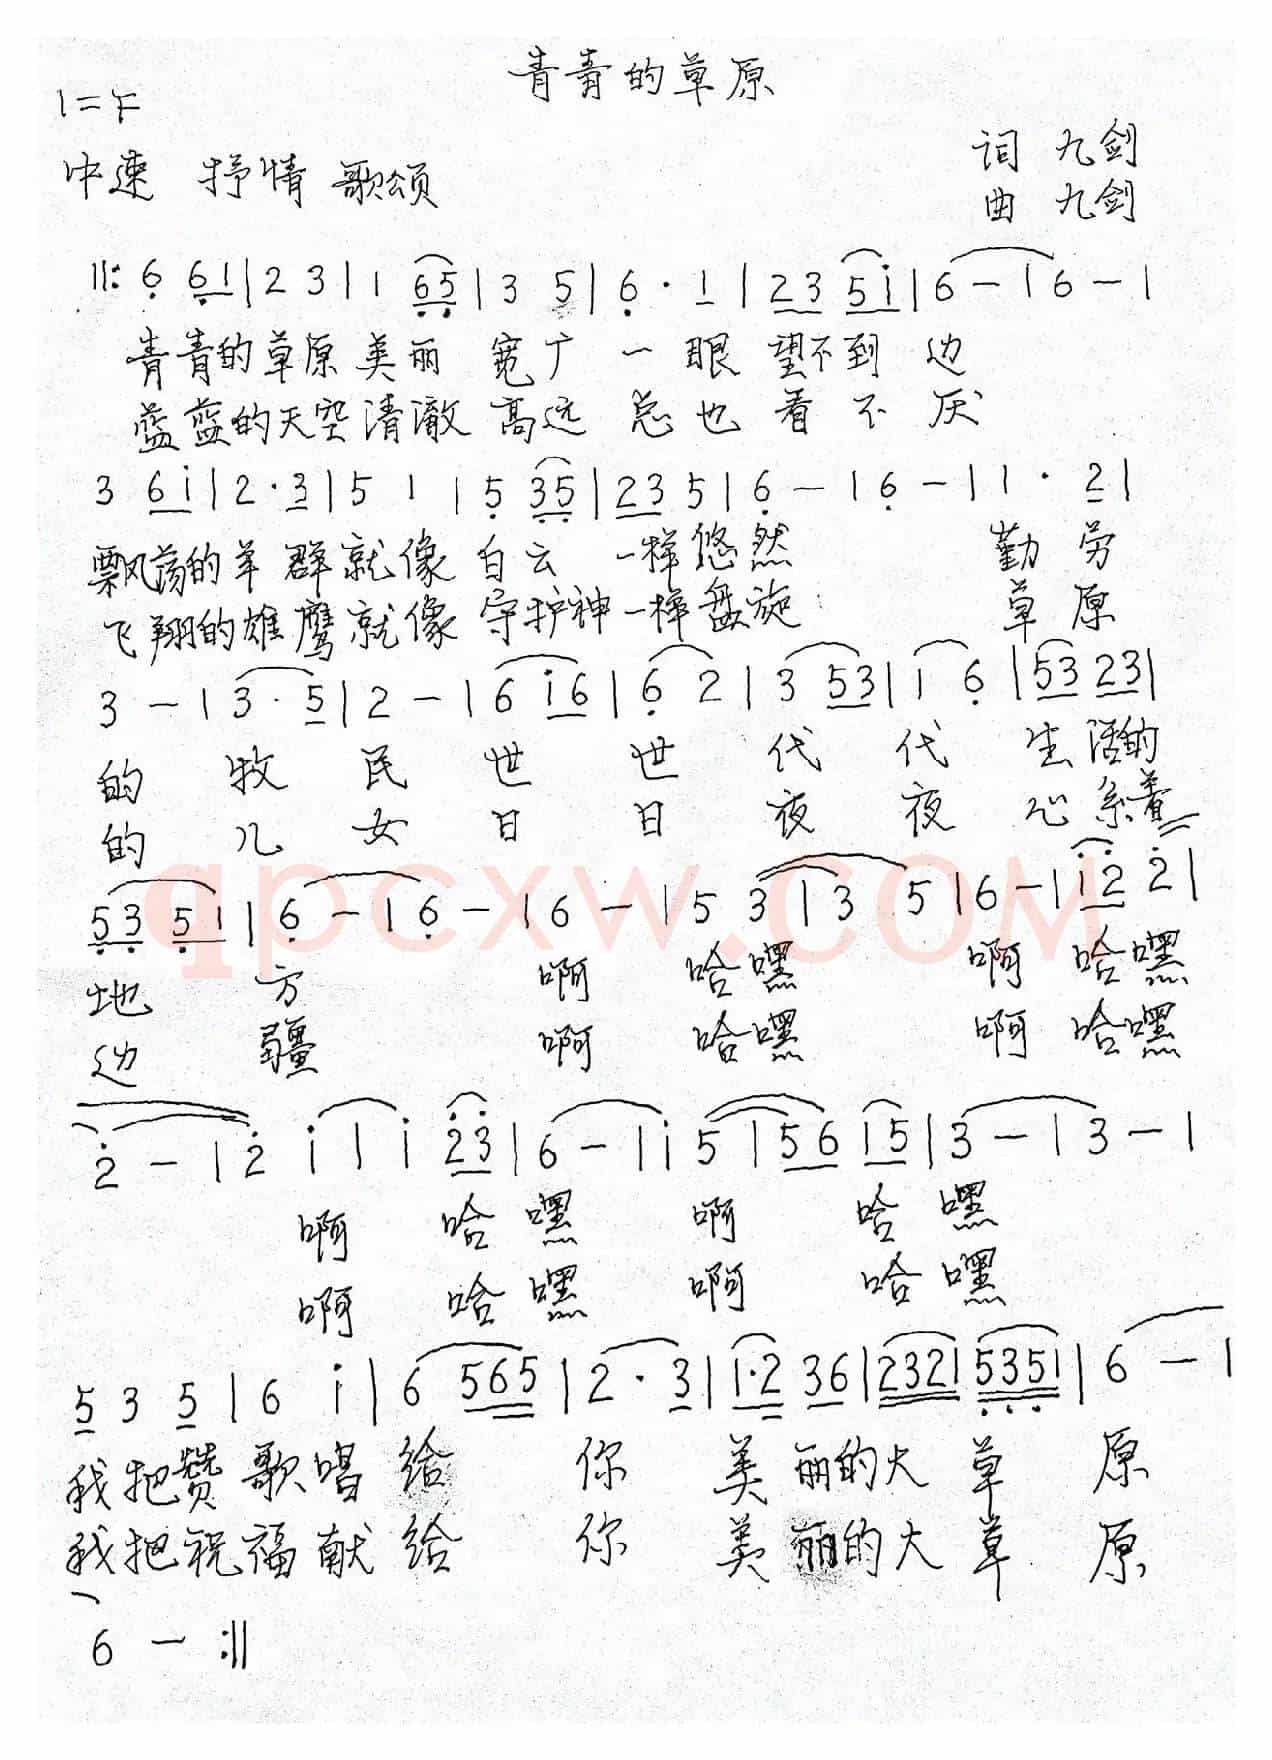 青青的草原
1=F
中速 抒情 歌颂
词 九剑
曲 九剑
‖: 6 61 | 2 3 | 1 65 | 3 5 | 6 · 1 | 23 5i | 6 — | 6 — |
青青的草原美丽 宽广 一眼 望不到 边
蓝蓝的天空清澈 高远 总也 看不厌
3 6i | 2 · 3 | 5 1 | 5 35 | 23 5 | 6 — | 6 — | 1 · 2 |
飘荡的羊群就像 白云 一样悠然 勤劳
飞翔的雄鹰就像 守护神一样盘旋 草原
3 — | 3 · 5 | 2 — | 6 i6 | 6 2 | 3 53 | 1 6 | 53 23 |
的 牧 民 世 世 代 代 生 活的
的 儿 女 日 日 夜 夜 心 系着
53 51 | 6 — | 6 — | 6 — | 5 3 | 3 5 | 6 — | i2 2 |
地 方 啊 哈嘿 啊 哈嘿
边 疆 啊 哈嘿 啊 哈嘿
2 — | 2 i | i 23 | 6 — | i 5 | 56 15 | 3 — | 3 — |
啊 哈 嘿 啊 哈 嘿
啊 哈 嘿 啊 哈 嘿
5 3 5 | 6 i | 6 565 | 2 · 3 | 1·2 36 | 2321 5351 | 6 — |
我把赞歌唱给 你 美丽的大草 原
我把祝福献给 你 美丽的大草 原
6 — :‖
qpcxw.COM